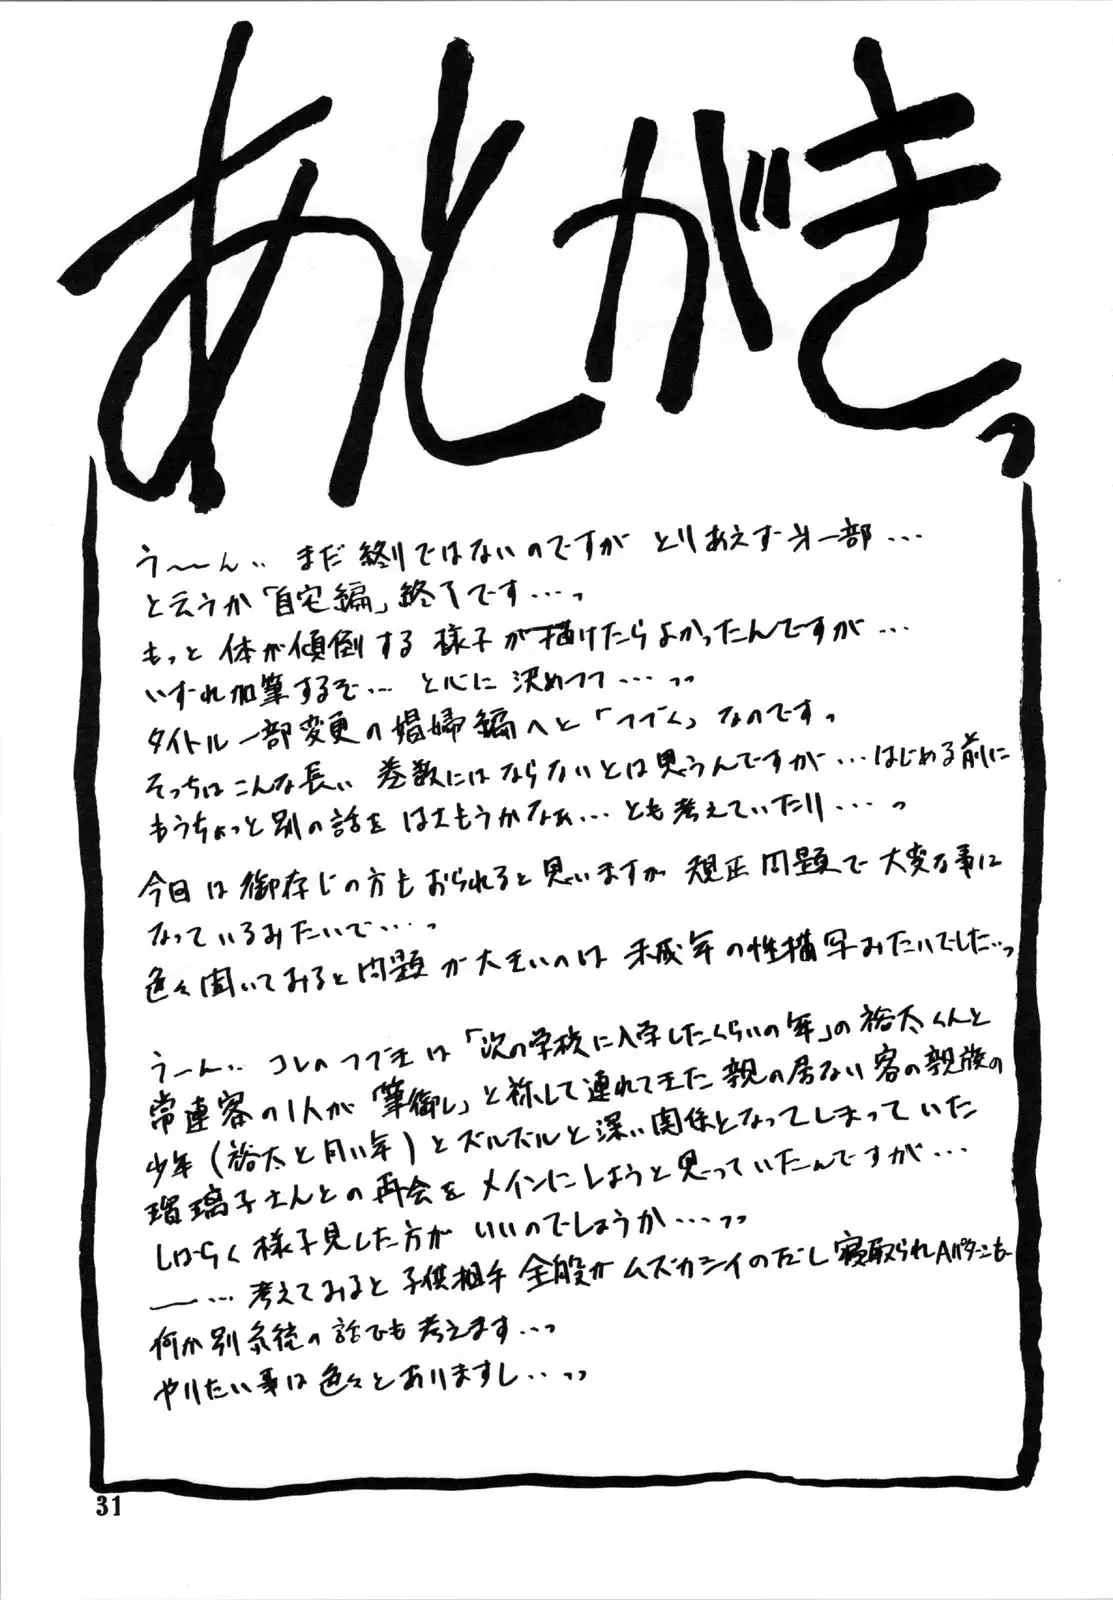 あとがきっ
う〜〜ん‥ まだ終りではないのですが とりあえず才一部…
と云うか「自宅編」終了です…っ
もっと 体が傾倒する 様子が描けたらよかったんですが…
いずれ加筆するぞ… と心に 決めつつ…っっ
タイトル一部変更の娼婦編へと「つづく」なのですっ
そっちはこんな長い 巻数にはならないとは思うんですが…はじめる前に
もうちょっと別の話を はさもうかなぁ… とも考えていたり…っ
今回は御存じの方もおられると思いますが 規正問題で大変な事に
なっているみたいで…っ
色々聞いてみると問題が大きいのは 未成年の性描写みたいでした…っ
うーん‥ コレのつづきは「次の学校に入学したくらいの年」の裕太くんと
常連客の1人が「筆御し」と称して連れてきた親の居ない客の親族の
少年(裕太と同い年)とズルズルと深い関係となってしまっていた
瑠璃子さんとの再会をメインにしようと思っていたんですが…
しばらく様子見した方がいいのでしょうか…っっ
ー… 考えてみると子供相手全般がムズカシイのだし寝取られAパターンも
何か別系統の話でも考えます…っ
やりたい事は色々とありますし…っっ
31